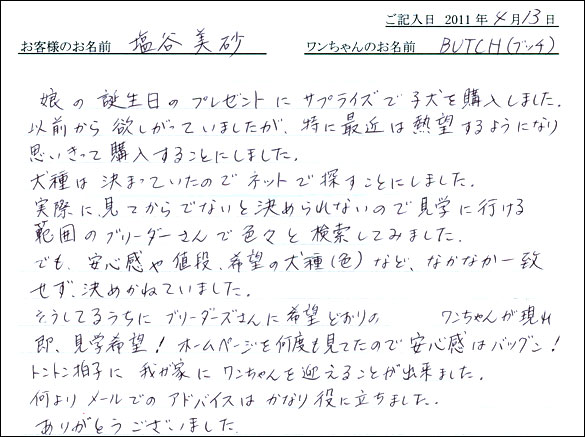 ご記入日 2011年4月13日
お客様のお名前 塩谷美砂 ワンちゃんのお名前 BUTCH(ブッチ)
娘の誕生日のプレゼントにサプライズで子犬を購入しました。
以前から欲しがっていましたが、特に最近は熱望するようになり
思いきって購入することにしました。
犬種は決まっていたのでネットで探すことにしました。
実際に見てからでないと決められないので見学に行ける
範囲のブリーダーさんで色々と検索してみました。
でも、安心感や値段、希望の犬種(色)など、なかなか一致
せず、決めかねていました。
そうしてるうちにブリーダーズさんに希望どおりの ワンちゃんが現れ
即、見学希望!ホームページを何度も見てたので安心感はバツグン!
トントン拍子に我が家にワンちゃんを迎えることが出来ました。
何よりメールでのアドバイスはかなり役に立ちました。
ありがとうございました。